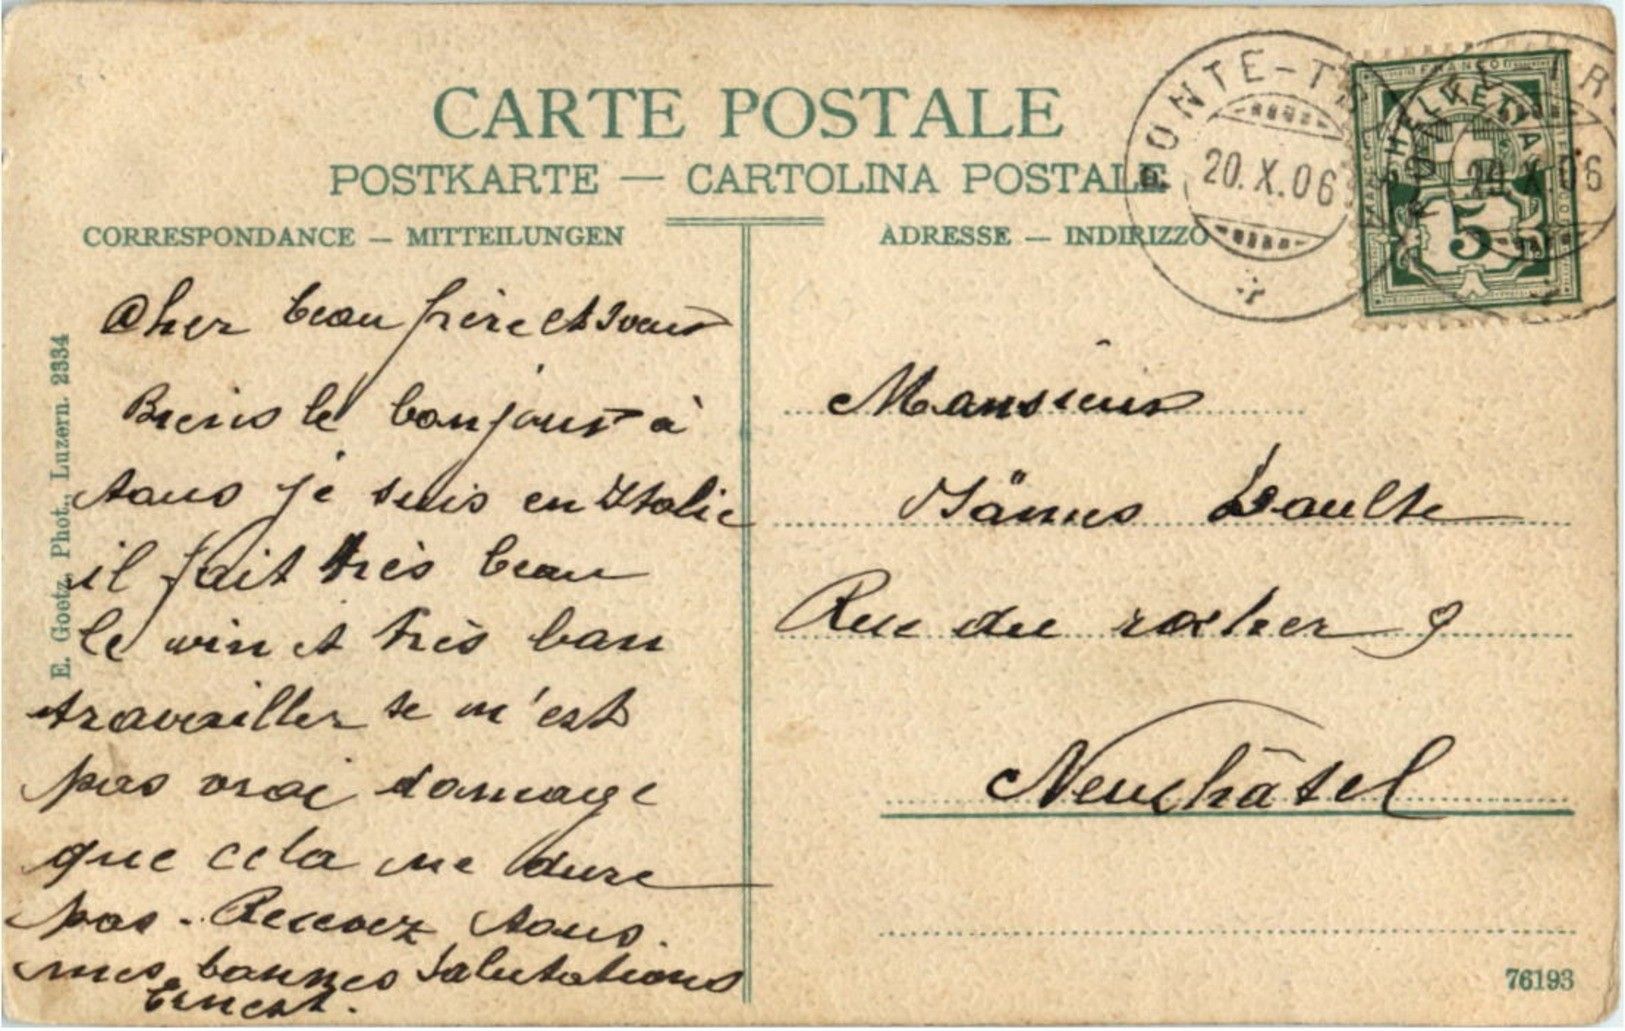 CARTE POSTALE
POSTKARTE — CARTOLINA POSTALE
CORRESPONDANCE — MITTEILUNGEN
ADRESSE — INDIRIZZO
PONTE-TR
20.X.06
HELVETIA
FRANCO
5
20.X.06
Cher beau frère et soeur
Biens le bonjour à
tous je suis en Italie
il fait très beau
le vin et très bon
travailler se m'est
pas vrai domage
que cela ne dure
pas - Recevez tous.
mes bonnes salutations
Ernest.
Monsieur
Jämes Daulte
Rue du rocher 9
Neuchâtel
E. Goetz, Phot., Luzern. 2334
76193